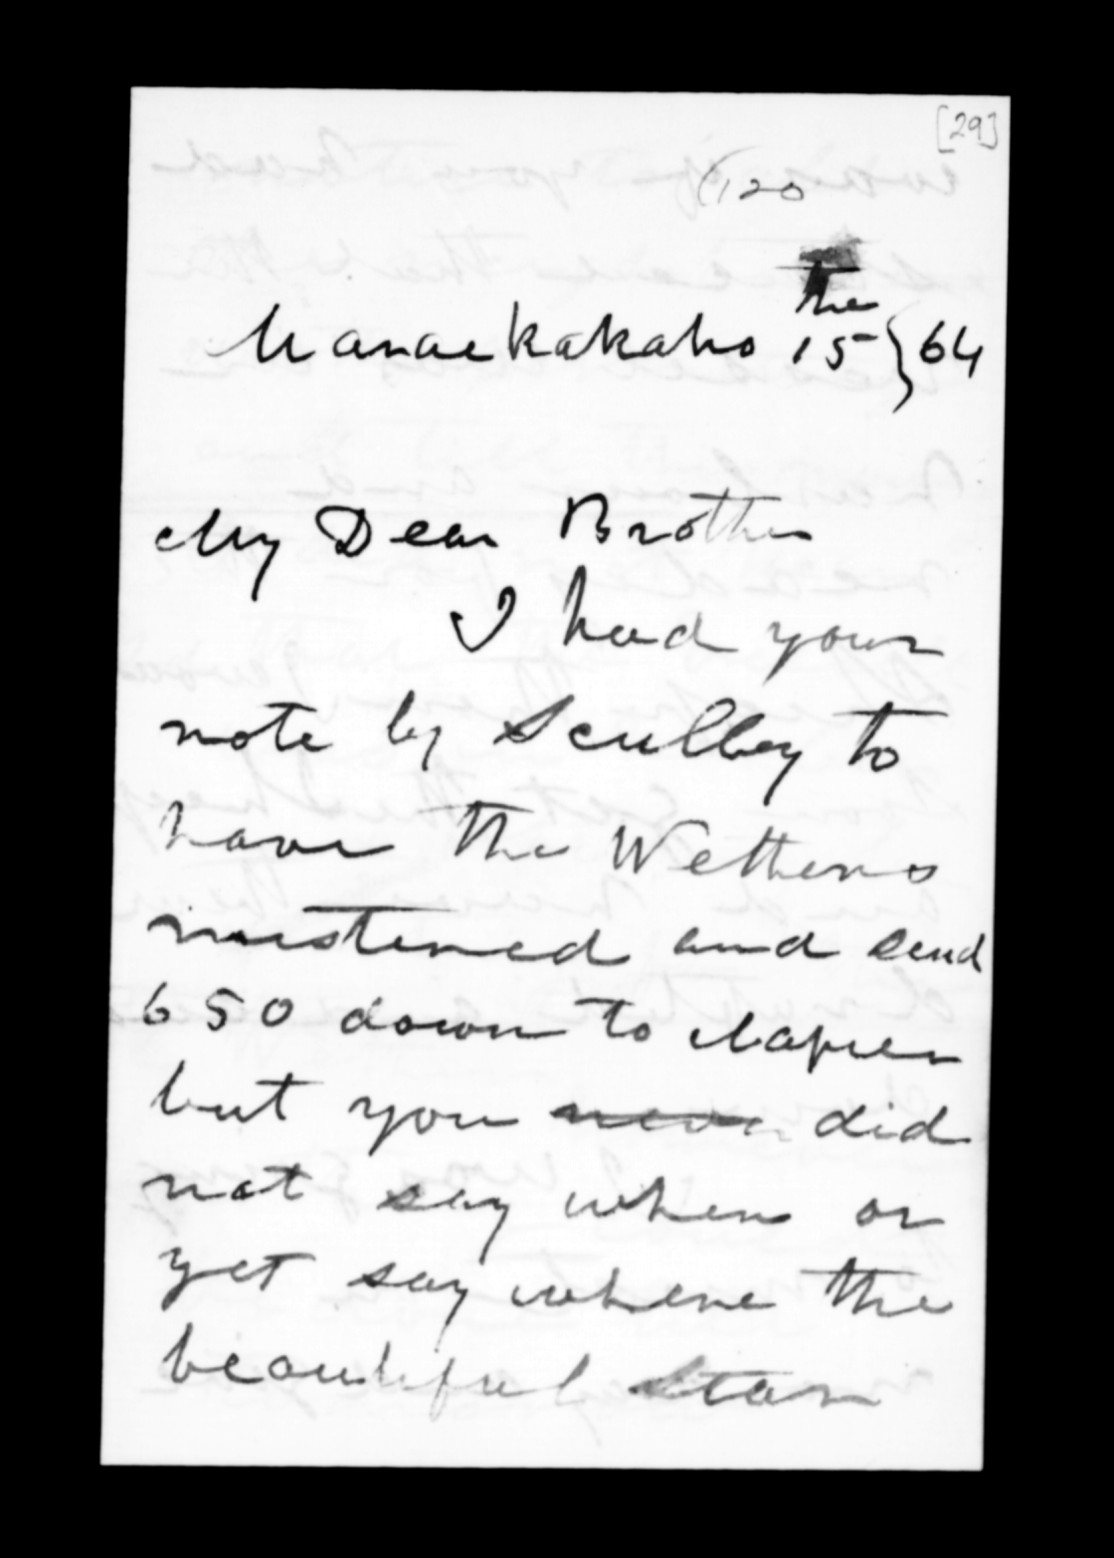 [29]
(120
Maraekakaho 15 the } 64
My Dear Brother
I had your
note by Sculley to
have the Wethers
mustered and send
650 down to Napier
but you never did
not say when or
yet say where the
beautiful Star